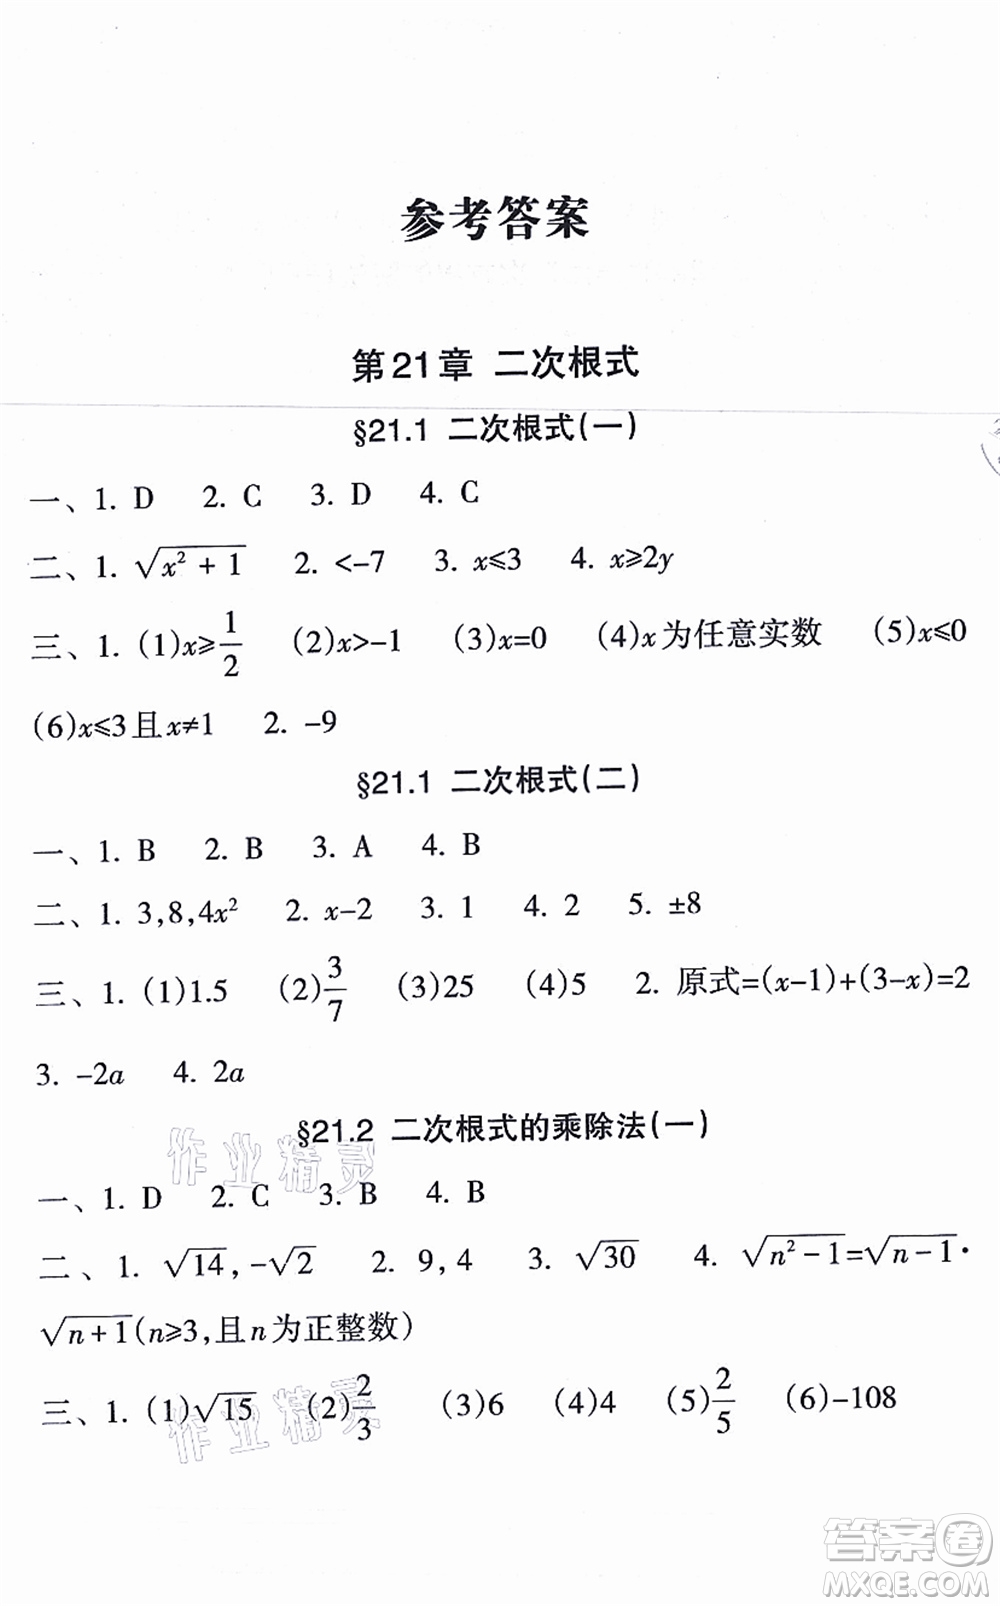 参考答案
第21章 二次根式
§21.1 二次根式(一)
一、1. D 2. C 3. D 4. C
二、1. √(x²+1) 2. <-7 3. x≤3 4. x≥2y
三、1. (1)x≥1/2 (2)x>-1 (3)x=0 (4)x为任意实数 (5)x≤0
(6)x≤3且x≠1 2. -9
§21.1 二次根式(二)
一、1. B 2. B 3. A 4. B
二、1. 3,8,4x² 2. x-2 3. 1 4. 2 5. ±8
三、1. (1)1.5 (2)3/7 (3)25 (4)5 2. 原式=(x-1)+(3-x)=2
3. -2a 4. 2a
§21.2 二次根式的乘除法(一)
作业精灵
一、1. D 2. C 3. B 4. B
二、1. √14,-√2 2. 9,4 3. √30 4. √(n²-1)=√(n-1)·
√(n+1)(n≥3,且n为正整数)
三、1. (1)√15 (2)2/3 (3)6 (4)4 (5)2/5 (6)-108
作业精灵
答案圈
MXQE.COM